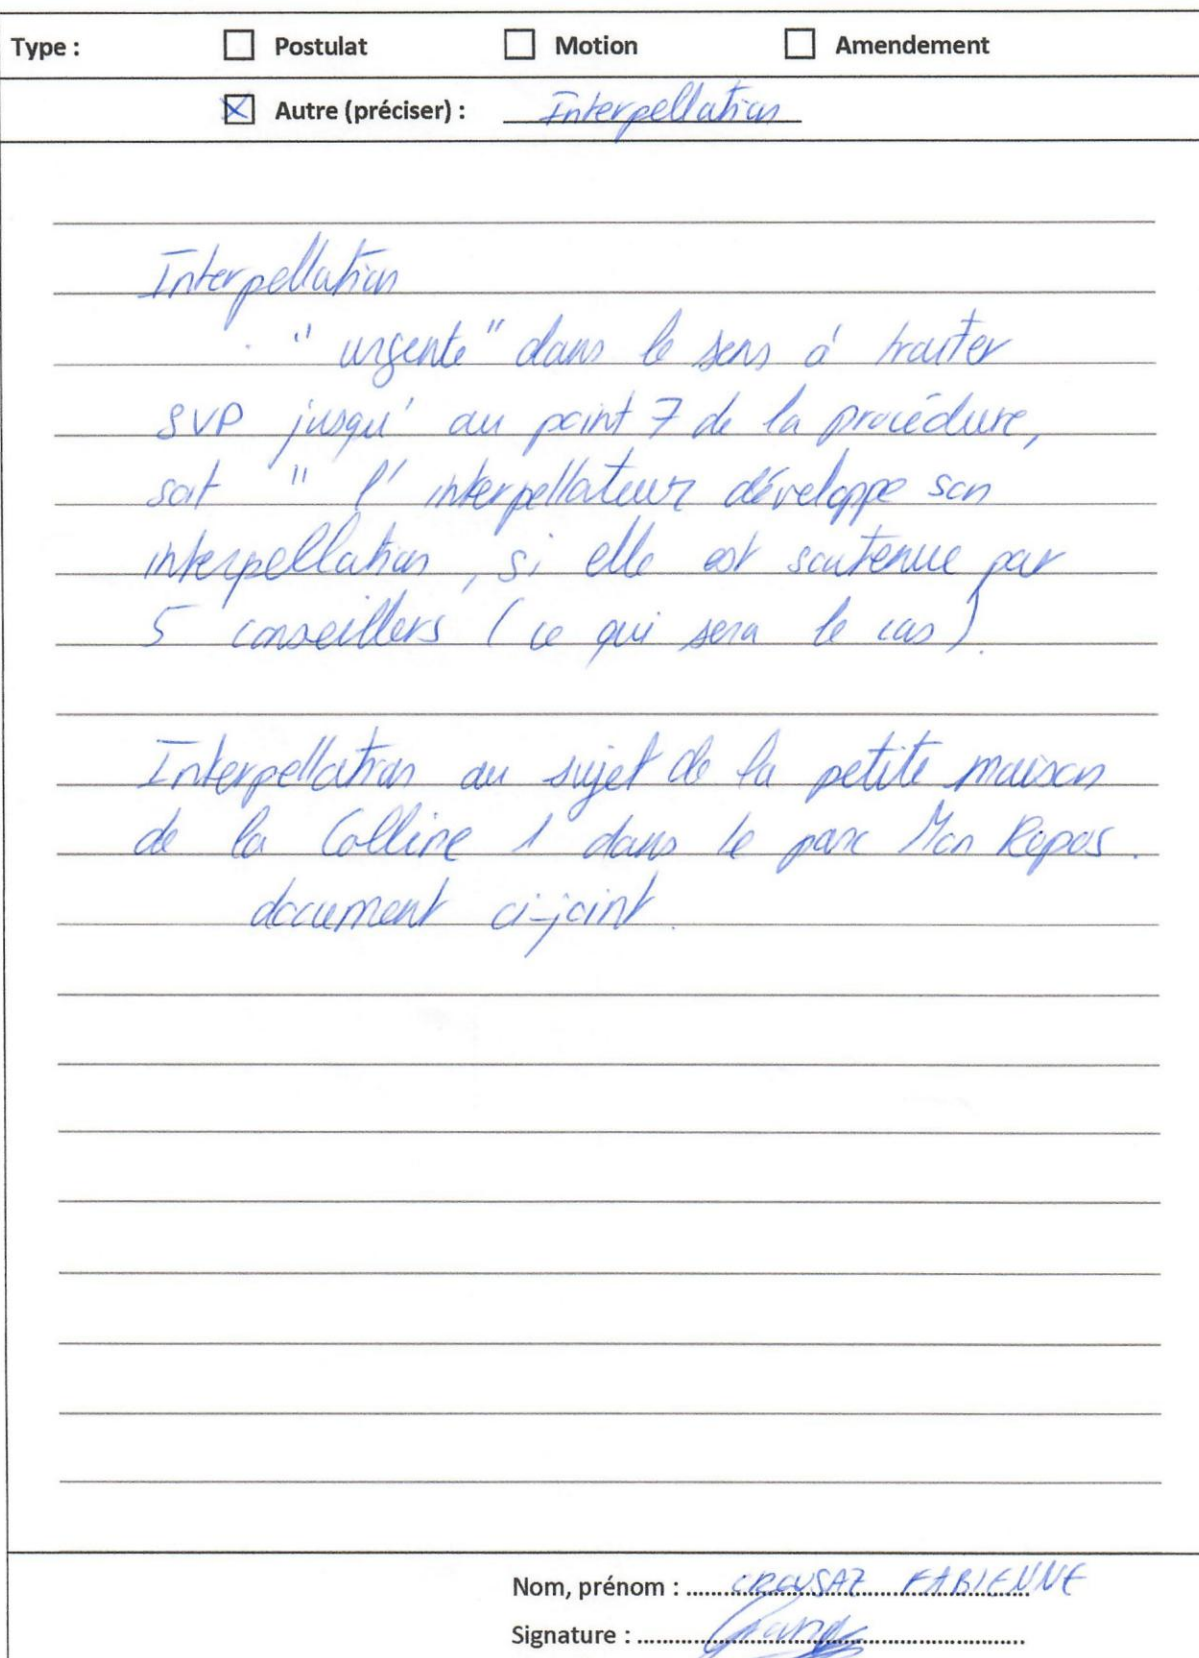 Type : Postulat Motion Amendement
Autre (préciser) : Interpellation
Interpellation
"urgente" dans le sens à traiter
SVP jusqu'au point 7 de la procédure,
soit " l'interpellateur développe son
interpellation, si elle est soutenue par
5 conseillers (ce qui sera le cas).
Interpellation au sujet de la petite maison
de la Colline 1 dans le parc Mon Repos.
document ci-joint.
Nom, prénom : CREUSAZ FABIENNE
Signature :